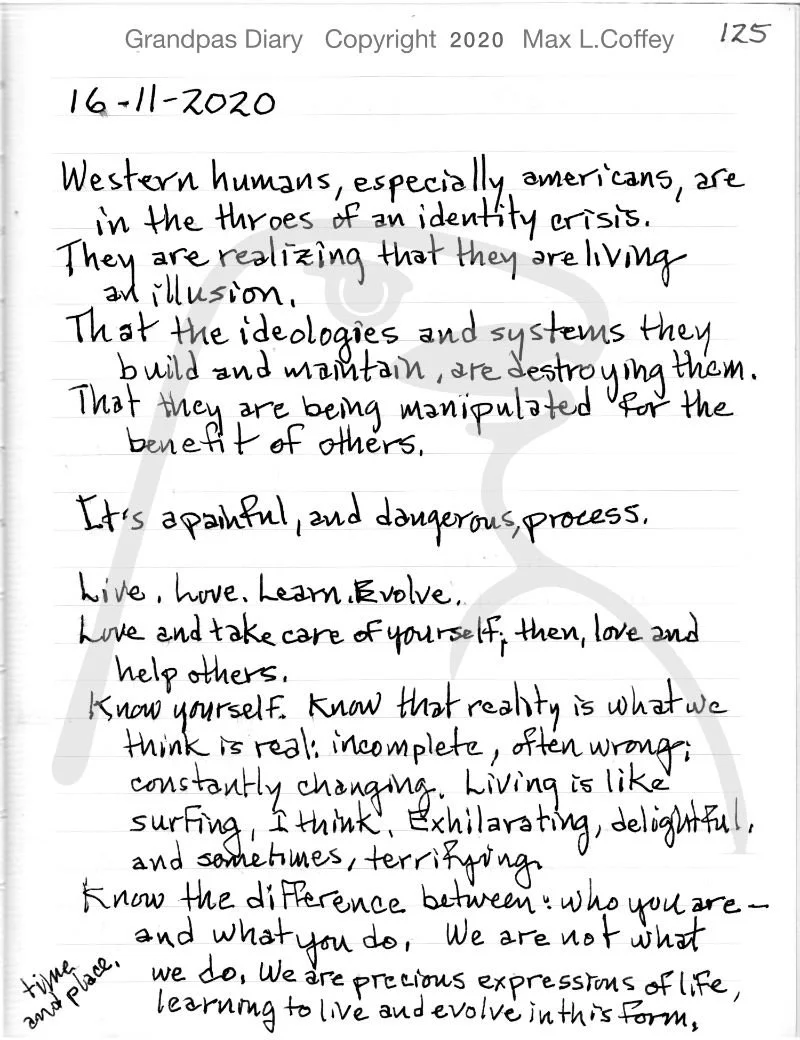 Grandpas Diary Copyright 2020 Max L.Coffey 125
16-11-2020
Western humans, especially americans, are
in the throes of an identity crisis.
They are realizing that they are living
an illusion.
That the ideologies and systems they
build and maintain, are destroying them.
That they are being manipulated for the
benefit of others.
It's a painful, and dangerous, process.
Live. Love. Learn. Evolve.
Love and take care of yourself; then, love and
help others.
Know yourself. Know that reality is what we
think is real: incomplete, often wrong;
constantly changing. Living is like
surfing, I think. Exhilarating, delightful,
and sometimes, terrifying.
Know the difference between: who you are—
and what you do. We are not what
we do. We are precious expressions of life,
learning to live and evolve in this form,
time
and place.